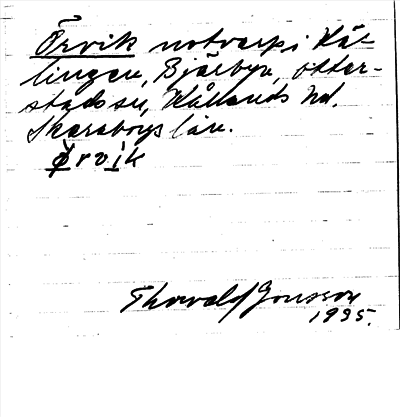 Örvik notvarp i Käl-
lingen, Bjärbyn, Otter-
stads sn, Kållands hd.
Skaraborgs län.
Örvik
Thorvald Jonsson
1935.